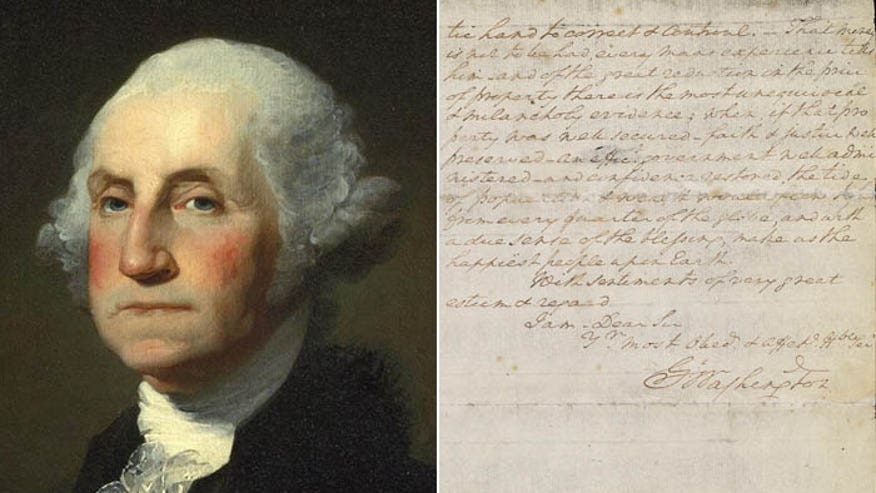 tic hand to correct & control. — That money
is not to be had, every mans experience tells
him and of the great reduction in the price
of property there is the most unequivocal
& milancholy evidence; when, if that pro
perty was well secured – faith & justice well
preserved – an government well admi
nistered – and confidence restored, the tide
of population & wealth would flow to us
from every quarter of the globe, and with
a due sense of the blessing, make us the
happiest people upon Earth.
With sentiments of very great
esteem & regard
I am – Dear Sir
Yr. most Obed. & Affect. Hble Ser
Go Washington